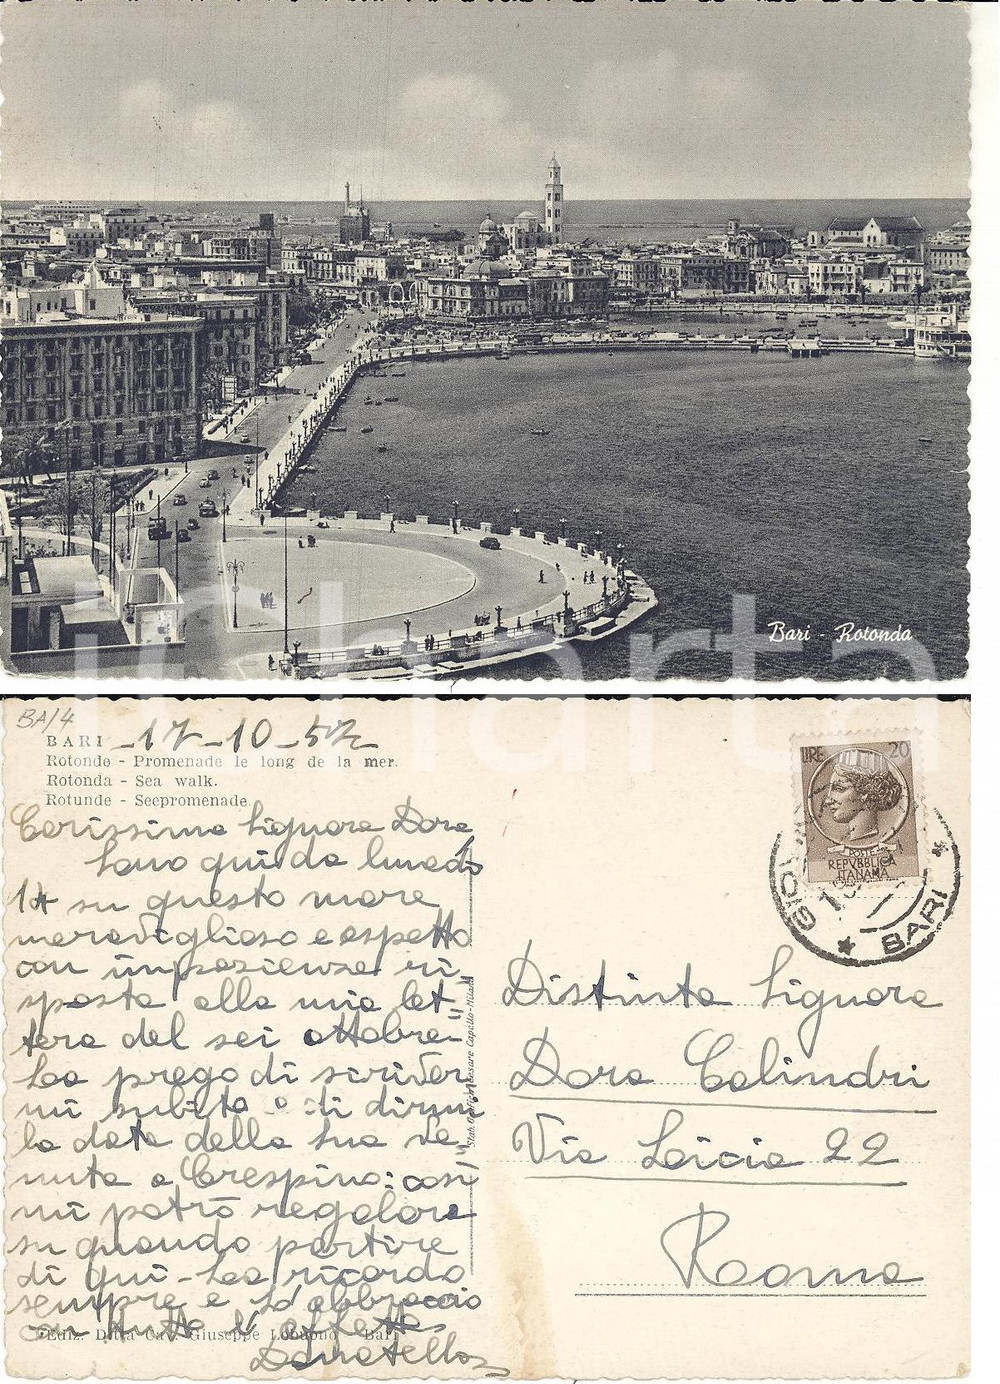 Bari - Rotonda
BA/4
BARI - 17-10-57
Rotonde - Promenade le long de la mer.
Rotonda - Sea walk.
Rotunde - Seepromenade.
Carissima Signora Dora
Sono qui da lunedì
14 su questo mare
meraviglioso e aspetto
con impazienza ri-
sposta alla mia let-
tera del sei ottobre-
La prego di scriver
mi subito e di dirmi
la data della Sua ve-
nuta a Crespino: così
mi potrò regolare
su quando partire
di qui - La ricordo
sempre e L'abbraccio
con tutto l'affetto
Donatella
Ediz. Ditta Cav. Giuseppe Lobuono - Bari
Stab. Grafico Cesare Capello-Milano
LIRE 20
POSTE
REPVBBLICA
ITALIANA
BARI
Distinta Signora
Dora Calindri
Via Licia 22
Roma
inharta